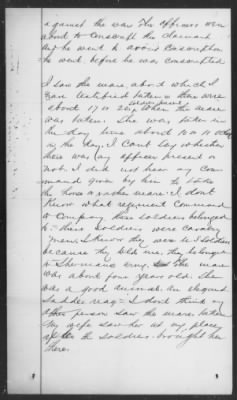 against the war. The officers were
about to conscript the claimant
but he went to avoid conscription
he went before he was conscripted
I saw the mare about which I
have testified taken = there were
about 17 or 20 when the mare
was taken. She was taken in
the day time about 10 or 11 oclock
in the day. I cant say whether
there was any officer present or
not. I did not hear any com
mand given by him to take
the horse or rather mare. I dont
Know what regiment Command
or Company these soldiers belonged
to = These soldiers were cavalry
men. I know they were U.S. soldiers
because they told me, they belonged
to Shermans army. The mare
was about four years old. She
was a good animal. An elegant
saddle nag = I dont think any
other person saw the mare taken
My wife saw her at my place,
after the soldiers brought her
there.